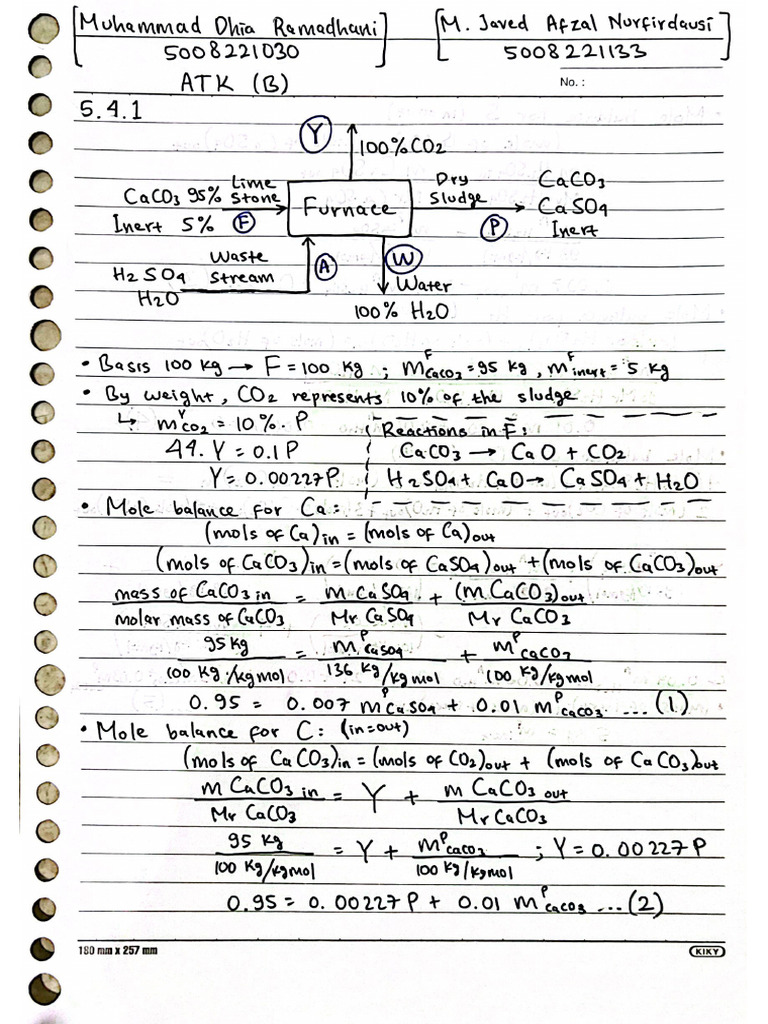 [Muhammad Dhia Ramadhani 5008221030] [M. Javed Afzal Nurfirdausi 5008221133]
ATK (B)
No. :
5.4.1
Y
100% CO2
CaCO3 95% Lime Stone
Inert 5% F
Furnace
Dry Sludge
P
CaCO3
CaSO4
Inert
H2SO4
H2O
Waste Stream
A
W
Water
100% H2O
• Basis 100 kg → F = 100 kg ; m^F CaCO3 = 95 kg , m^F inert = 5 kg
• By weight, CO2 represents 10% of the sludge
↳ m^Y CO2 = 10% . P
44. Y = 0.1 P
Y = 0.00227 P
Reactions in F:
CaCO3 → CaO + CO2
H2SO4 + CaO → CaSO4 + H2O
• Mole balance for Ca:
(mols of Ca)in = (mols of Ca)out
(mols of CaCO3)in = (mols of CaSO4)out + (mols of CaCO3)out
mass of CaCO3 in / molar mass of CaCO3 = m CaSO4 / Mr CaSO4 + (m CaCO3)out / Mr CaCO3
95 kg / 100 kg/kgmol = m^P CaSO4 / 136 kg/kgmol + m^P CaCO3 / 100 kg/kgmol
0.95 = 0.007 m^P CaSO4 + 0.01 m^P CaCO3 .... (1)
• Mole balance for C: (in=out)
(mols of CaCO3)in = (mols of CO2)out + (mols of CaCO3)out
m CaCO3 in / Mr CaCO3 = Y + m CaCO3 out / Mr CaCO3
95 kg / 100 kg/kgmol = Y + m^P CaCO3 / 100 kg/kgmol ; Y = 0.00227 P
0.95 = 0.00227 P + 0.01 m^P CaCO3 ....(2)
180 mm x 257 mm
KIKY